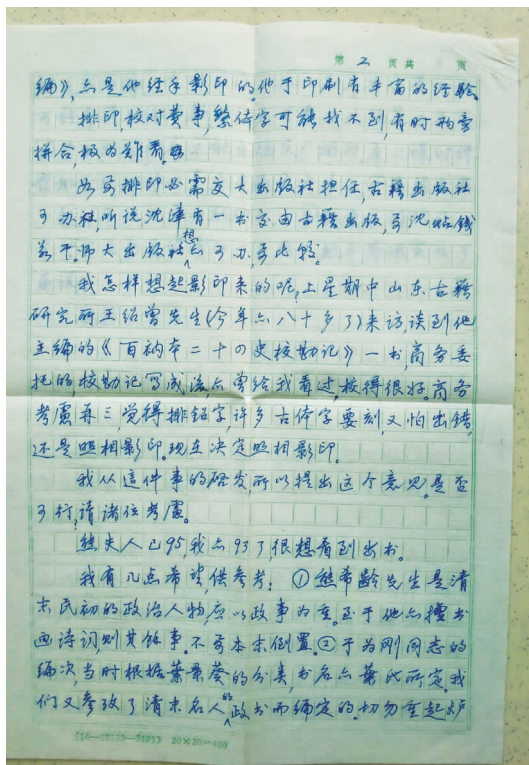 第 2 页共 页
编》,亦是他经手影印的。他于印刷有丰富的经验。
排印,校对费事,繁体字可能找不到,有时拘旁
拼合,极为难看。
如要排印必需交大出版社担任,古籍出版社
可办社,听说沈津有一书交由古籍出版,要沈贴钱
若干。师大出版社想亦可办,要比较。
我怎样想起影印来的呢,上星期中山东古籍
研究所王绍曾先生(今年亦八十多了)来访谈到他
主编的《百衲本二十四史校勘记》一书,商务委
托的,校勘记写成法,亦曾给我看过,校得很好。商务
考慮再三,觉得排铅字,许多古体字要刻,又怕出错,
还是照相影印。现在决定照相影印。
我从這件事的啓发,所以提出这个意见。是否
可行,请诸位考慮。
熊夫人已95我亦93了,很想看到出书。
我有几点希望,供参考:①熊希龄先生是清
末民初的政治人物,应以政事为重。至于他亦擅书
画诗词,则其馀事。不要本末倒置。②于为刚同志的
编次,当时根据葉景葵的分类,书名亦葉氏所定。我
们又参攷了清末名人的政书而编定的。切勿重起炉
(16—
20×20=400